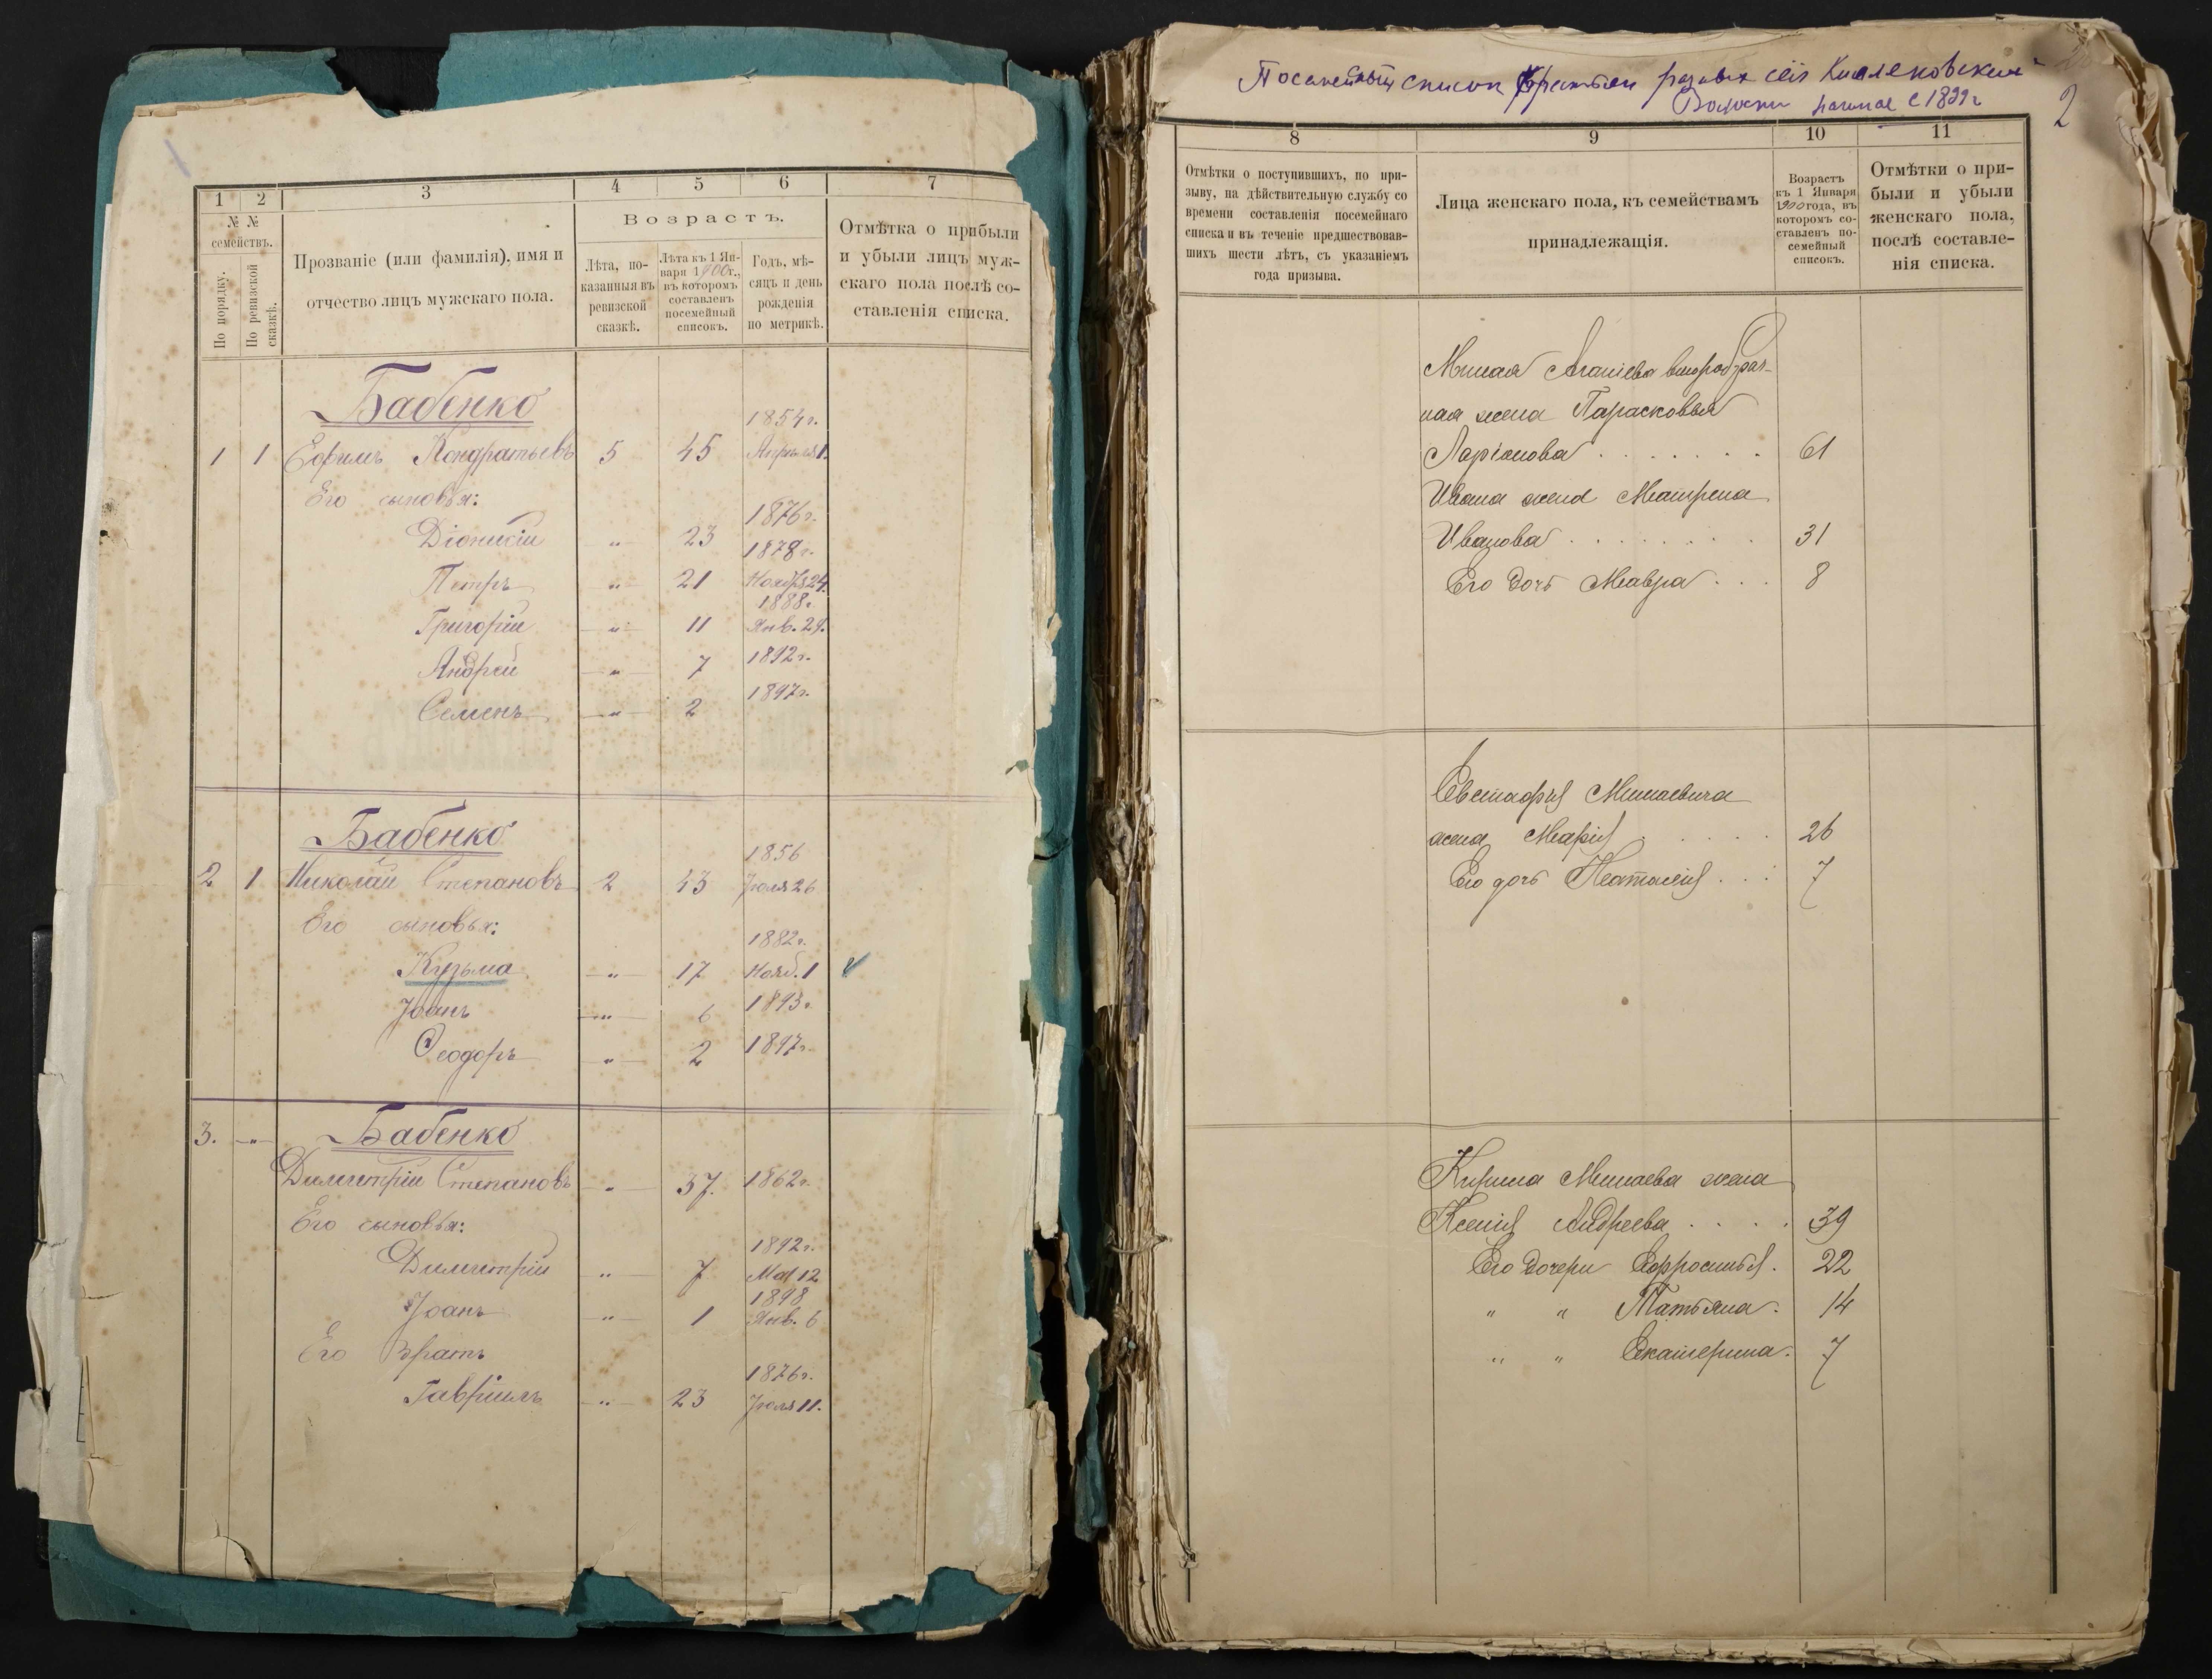 1 2 3 4 5 6 7
№ № семействъ.
По порядку.
По ревизской сказкѣ.
Прозваніе (или фамилія), имя и
отчество лицъ мужскаго пола.
Возрастъ.
Лѣта, по-
казанныя въ
ревизской
сказкѣ.
Лѣта къ 1 Ян-
варя 1900 г.,
въ которомъ
составленъ
посемейный
списокъ.
Годъ, мѣ-
сяцъ и день
рожденія
по метрикѣ.
Отмѣтка о прибыли
и убыли лицъ муж-
скаго пола послѣ со-
ставленія списка.
Бабенко
1854 г.
1 1 Ефимъ Кондратьевъ 5 45 Апрѣля 1.
Его сыновья:
1876 г.
Діонисій " 23
1878 г.
Петръ " 21 Ноября 24.
1888 г.
Григорій " 11 Янв. 29.
Андрей " 7 1892 г.
Семенъ " 2 1897 г.
Бабенко
1856
2 1 Николай Степановъ 2 43 Іюля 26
Его сыновья:
1882 г.
Кузьма " 17 Нояб. 1
Іоанъ " 6 1893 г.
Ѳеодоръ " 2 1897 г.
3. " Бабенко
Димитрій Степановъ " 37. 1862 г.
Его сыновья:
1892 г.
Димитрій " 7 Мая 12
1898
Іоанъ " 1 Янв. 6
Его братъ
1876 г.
Гавріилъ " 23 Іюля 11.
список
Волости начиная с
2
8 9 10 11
Отмѣтки о поступившихъ, по при-
зыву, на дѣйствительную службу со
времени составленія посемейнаго
списка и въ теченіе предшествовав-
шихъ шести лѣтъ, съ указаніемъ
года призыва.
Лица женскаго пола, къ семействамъ
принадлежащія.
Возрастъ
къ 1 Января
1900 года, въ
которомъ со-
ставленъ по-
семейный
списокъ.
Отмѣтки о при-
были и убыли
женскаго пола,
послѣ составле-
нія списка.
Миная Ананіева второбрач-
ная жена Парасковья
Ларіонова 61
Ивана жена Матрена
Иванова 31
Его дочь Мавра 8
Евстафія Минаевича
жена Марія 26
Его дочь Наталія 7
Кирила Минаева жена
Ксенія Андреева 39
Его дочери Ефросинья. 22
" " Татьяна. 14
" " Екатерина. 7